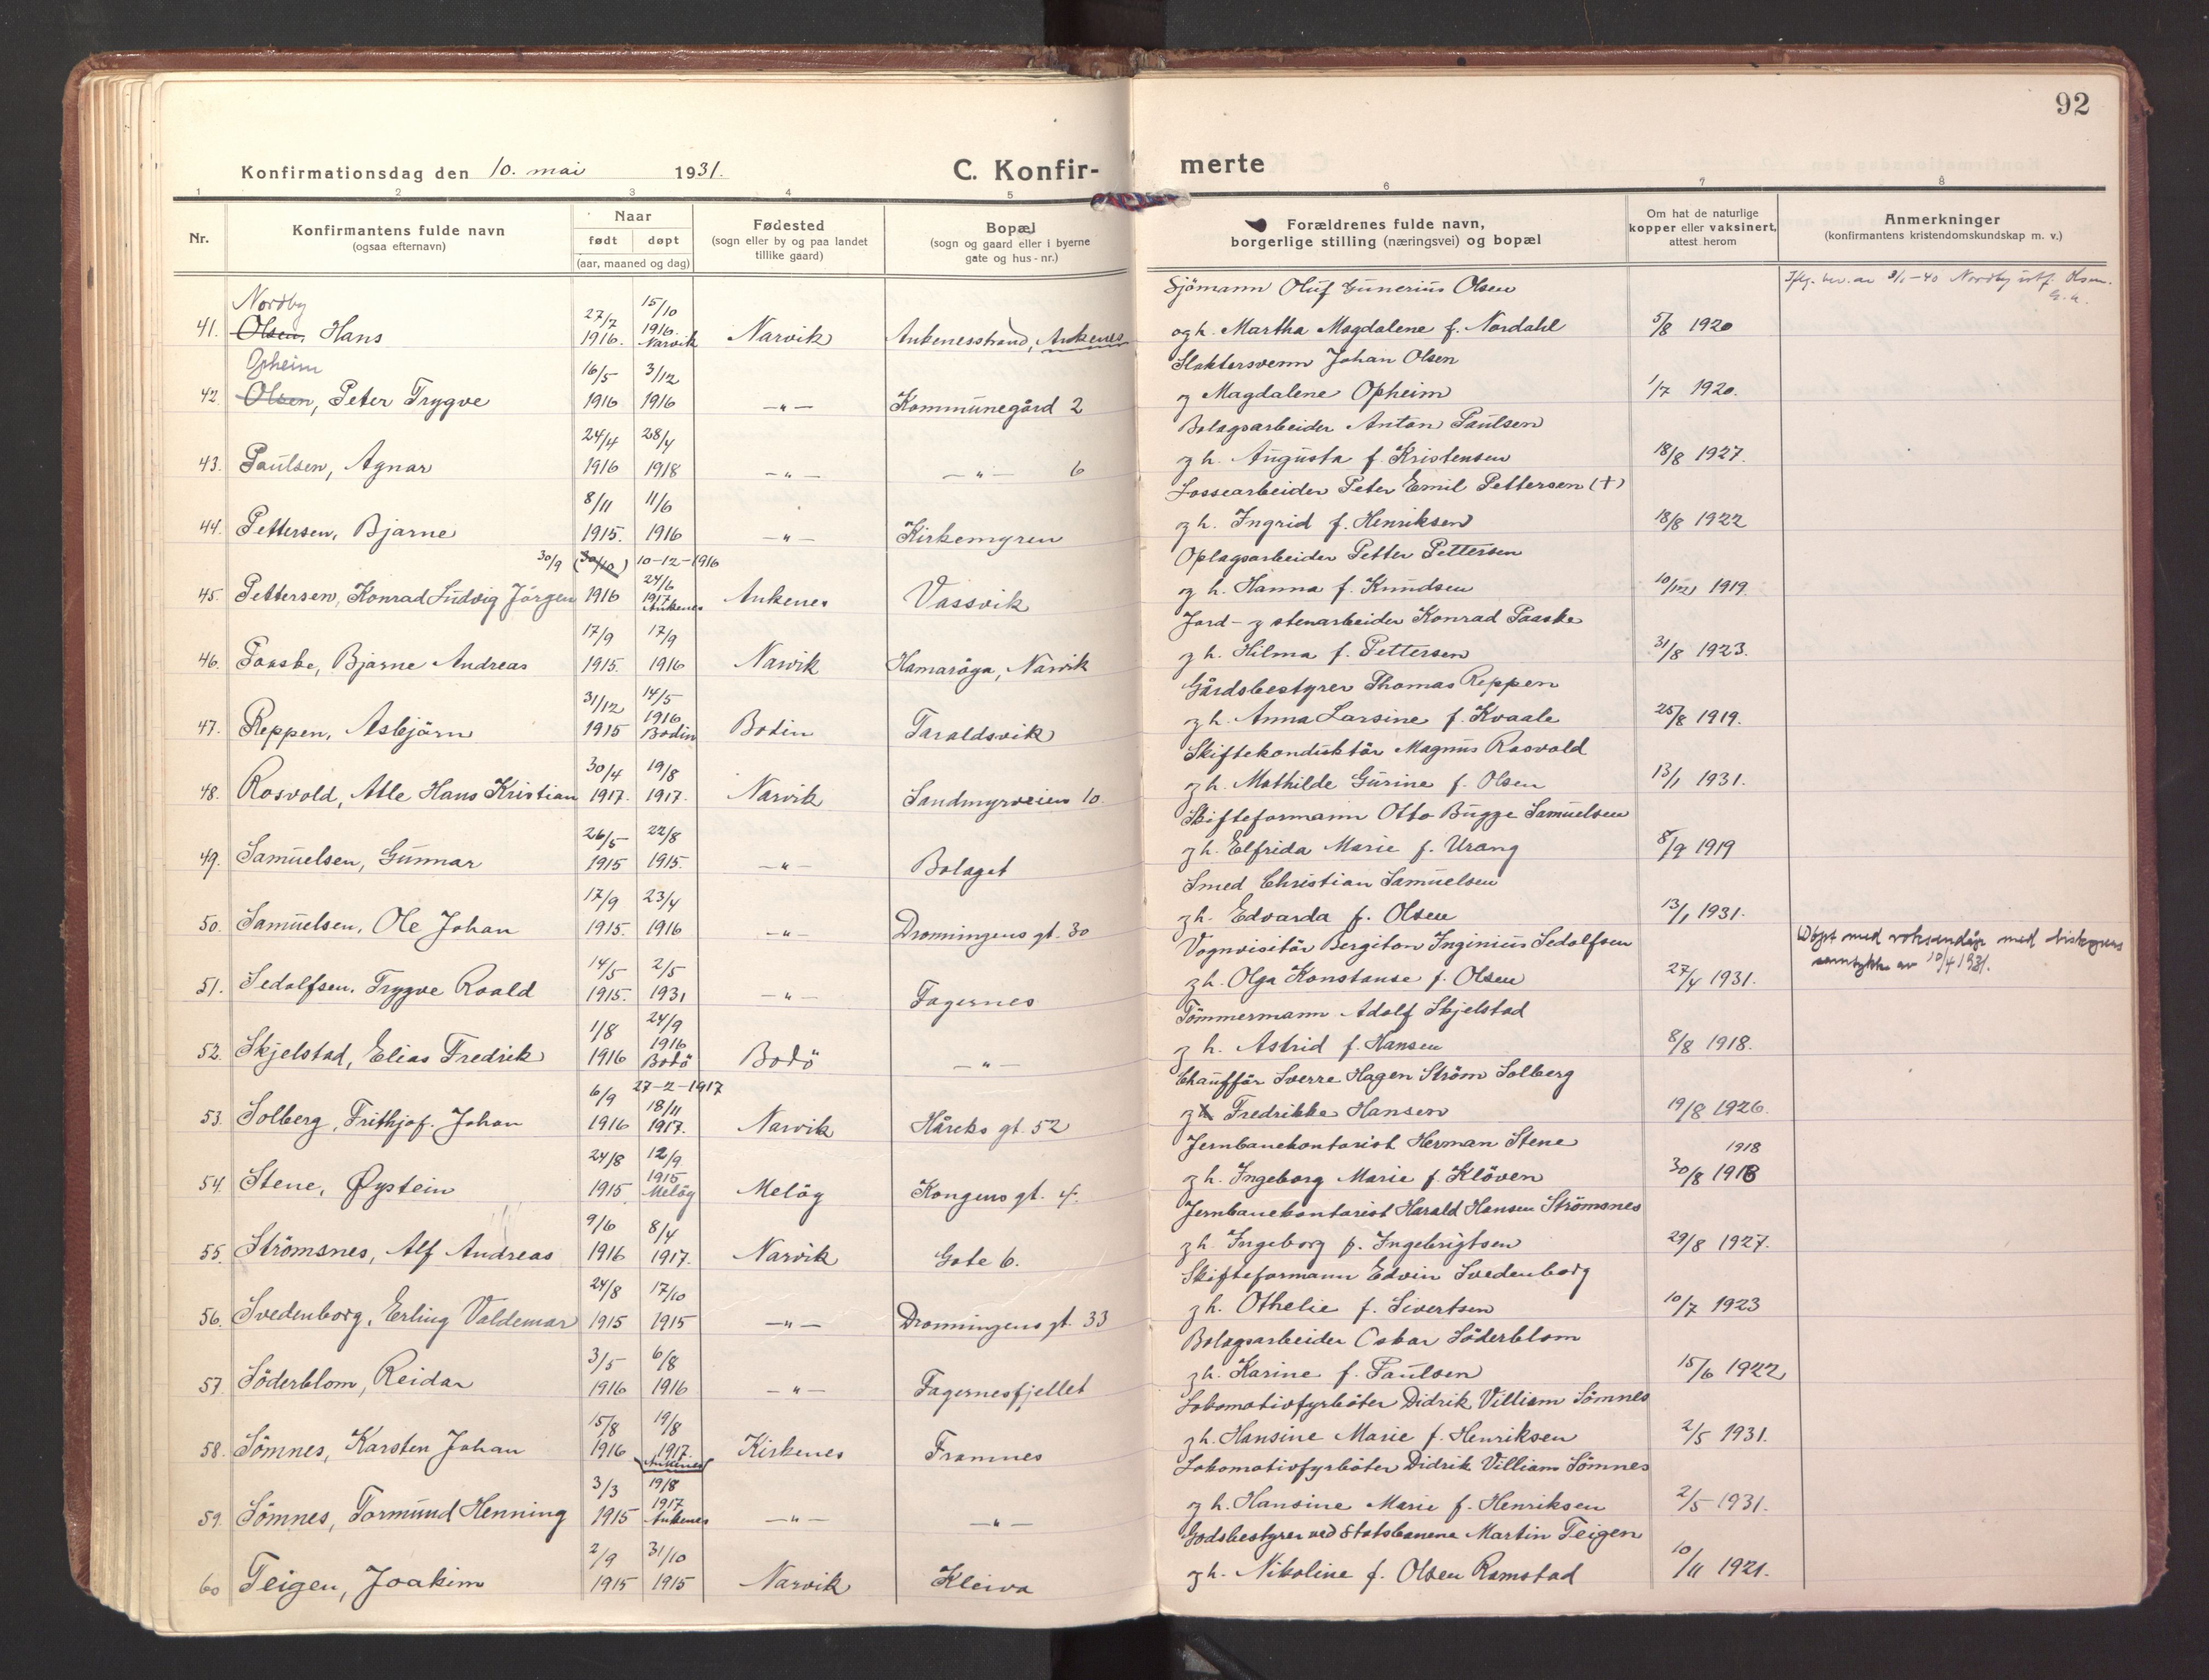 92
Konfirmationsdag den 10. mai 1931.
C. Konfir- merte
1 2 3 4 5 6 7 8
Nr.
Konfirmantens fulde navn
(ogsaa efternavn)
Naar
født døpt
(aar, maaned og dag)
Fødested
(sogn eller by og paa landet
tillike gaard)
Bopæl
(sogn og gaard eller i byerne
gate og hus-nr.)
Forældrenes fulde navn,
borgerlige stilling (næringsvei) og bopæl
Om hat de naturlige
kopper eller vaksinert,
attest herom
Anmerkninger
(konfirmantens kristendomskundskap m. v.)
Nordby 27/7 15/10 Sjömann Oluf Gunerius Olsen
41. Olsen, Hans 1916. 1916. Narvik Narvik Ankenesstrand, Ankenes og h. Martha Magdalene f. Nordahl 5/8 1920
Opheim 16/5 3/12 Slaktersvenn Johan Olsen
42. Olsen, Peter Trygve 1916 1916 —"— Kommunegård 2 og Magdalene Opheim 1/7 1920.
24/4 28/4 Bolagsarbeider Anton Paulsen
43. Paulsen, Agnar 1916 1918 —"— —"— 6 og h. Augusta f. Kristensen 18/8 1927.
8/11 11/6 Lossearbeider Peter Emil Pettersen (+)
44. Pettersen, Bjarne 1915. 1916 —"— Kirkemyren og h. Ingrid f. Henriksen 18/8 1922
30/9 (30/10) 10-12-1916 24/6 Oplagsarbeider Petter Pettersen
45. Pettersen, Konrad Ludvig Jörgen 1916 1917 Ankenes Ankenes Vassvik og h. Hanna f. Knudsen 10/12 1919.
17/9 17/9 Jord- og stenarbeider Konrad Paaske
46. Paaske, Bjarne Andreas 1915. 1916 Narvik Hamaröga, Narvik og h. Hilma f. Pettersen 31/8 1923.
31/12 14/5 Gårdsbestyrer Thomas Reppen
47. Reppen, Asbjörn 1915 1916 Bodin Bodin Taraldsvik og h. Anna Larsine f. Kvaale 25/8 1919.
30/4 19/8 Skiftekonduktör Magnus Rosvold
48. Rosvold, Atle Hans Kristian 1917. 1917. Narvik Sandmyrveien 10. og h. Mathilde Gurine f. Olsen 13/1 1931.
26/5 22/8 Skifteformann Otto Bugge Samuelsen
49. Samuelsen, Gunnar 1915 1915. —"— Bolaget og h. Elfrida Marie f. Urang 8/9 1919
17/9 23/4 Smed Christian Samuelsen
50. Samuelsen, Ole Johan 1915. 1916 —"— Dronningens gt. 30 og h. Edvarda f. Olsen 13/1 1931.
14/5 2/5 Vognvisitör Bergiton Inginius Sedolfsen Döpt med voksendåp med biskopens
51. Sedolfsen, Trygve Roald 1915. 1931 —"— Fagernes og h. Olga Konstanse f. Olsen 27/4 1931. samtykke av 10/4 1931.
1/8 24/9 Tömmermann Adolf Skjelstad
52. Skjelstad, Elias Fredrik 1916 1916 Bodö Bodö —"— og h. Astrid f. Hansen 8/8 1918.
6/9 27-2-1917 18/11 Chaufför Sverre Hagen Ström Solberg
53. Solberg, Frithjof. Johan 1916 1917. Narvik Håreks gt. 52 og Fredrikke Hansen 19/8 1926.
24/8 12/9 Jernbanekontorist Herman Stene 1918
54. Stene, Øystein 1915 1915 Melöy Melöy Kongens gt. 4. og h. Ingeborg Marie f. Klöven 30/8 1918
9/6 8/4 Jernbanekontorist Harald Hansen Strömsnes
55. Strömsnes, Alf Andreas 1916 1917. Narvik Gate 6. og h. Ingeborg f. Ingebrigtsen 29/8 1927.
24/8 17/10 Skifteformann Edvin Svedenborg
56. Svedenborg, Erling Valdemar 1915 1915 —"— Dronningens gt. 33 og h. Othelie f. Sivertsen 10/7 1923
3/5 6/8 Bolagsarbeider Oskar Söderblom
57. Söderblom, Reidar 1916 1916 —"— Fagernesfjellet og h. Karine f. Paulsen 15/6 1922
15/8 19/8 Lokomotivfyrböter Didrik Villiam Sömnes
58. Sömnes, Karsten Johan 1916 1917. Ankenes Kirkenes Framnes og h. Hansine Marie f. Henriksen 2/5 1931.
3/3 19/8 Lokomotivfyrböter Didrik Villiam Sömnes
59. Sömnes, Tormund Henning 1915 1917 Ankenes —"— —"— og h. Hansine Marie f. Henriksen 2/5 1931.
2/9 31/10 Godsbestyrer ved Statsbanene Martin Teigen
60 Teigen, Joakim 1915 1915 Narvik Kleiva og h. Nikoline f. Olsen Ramstad 10/11 1921.